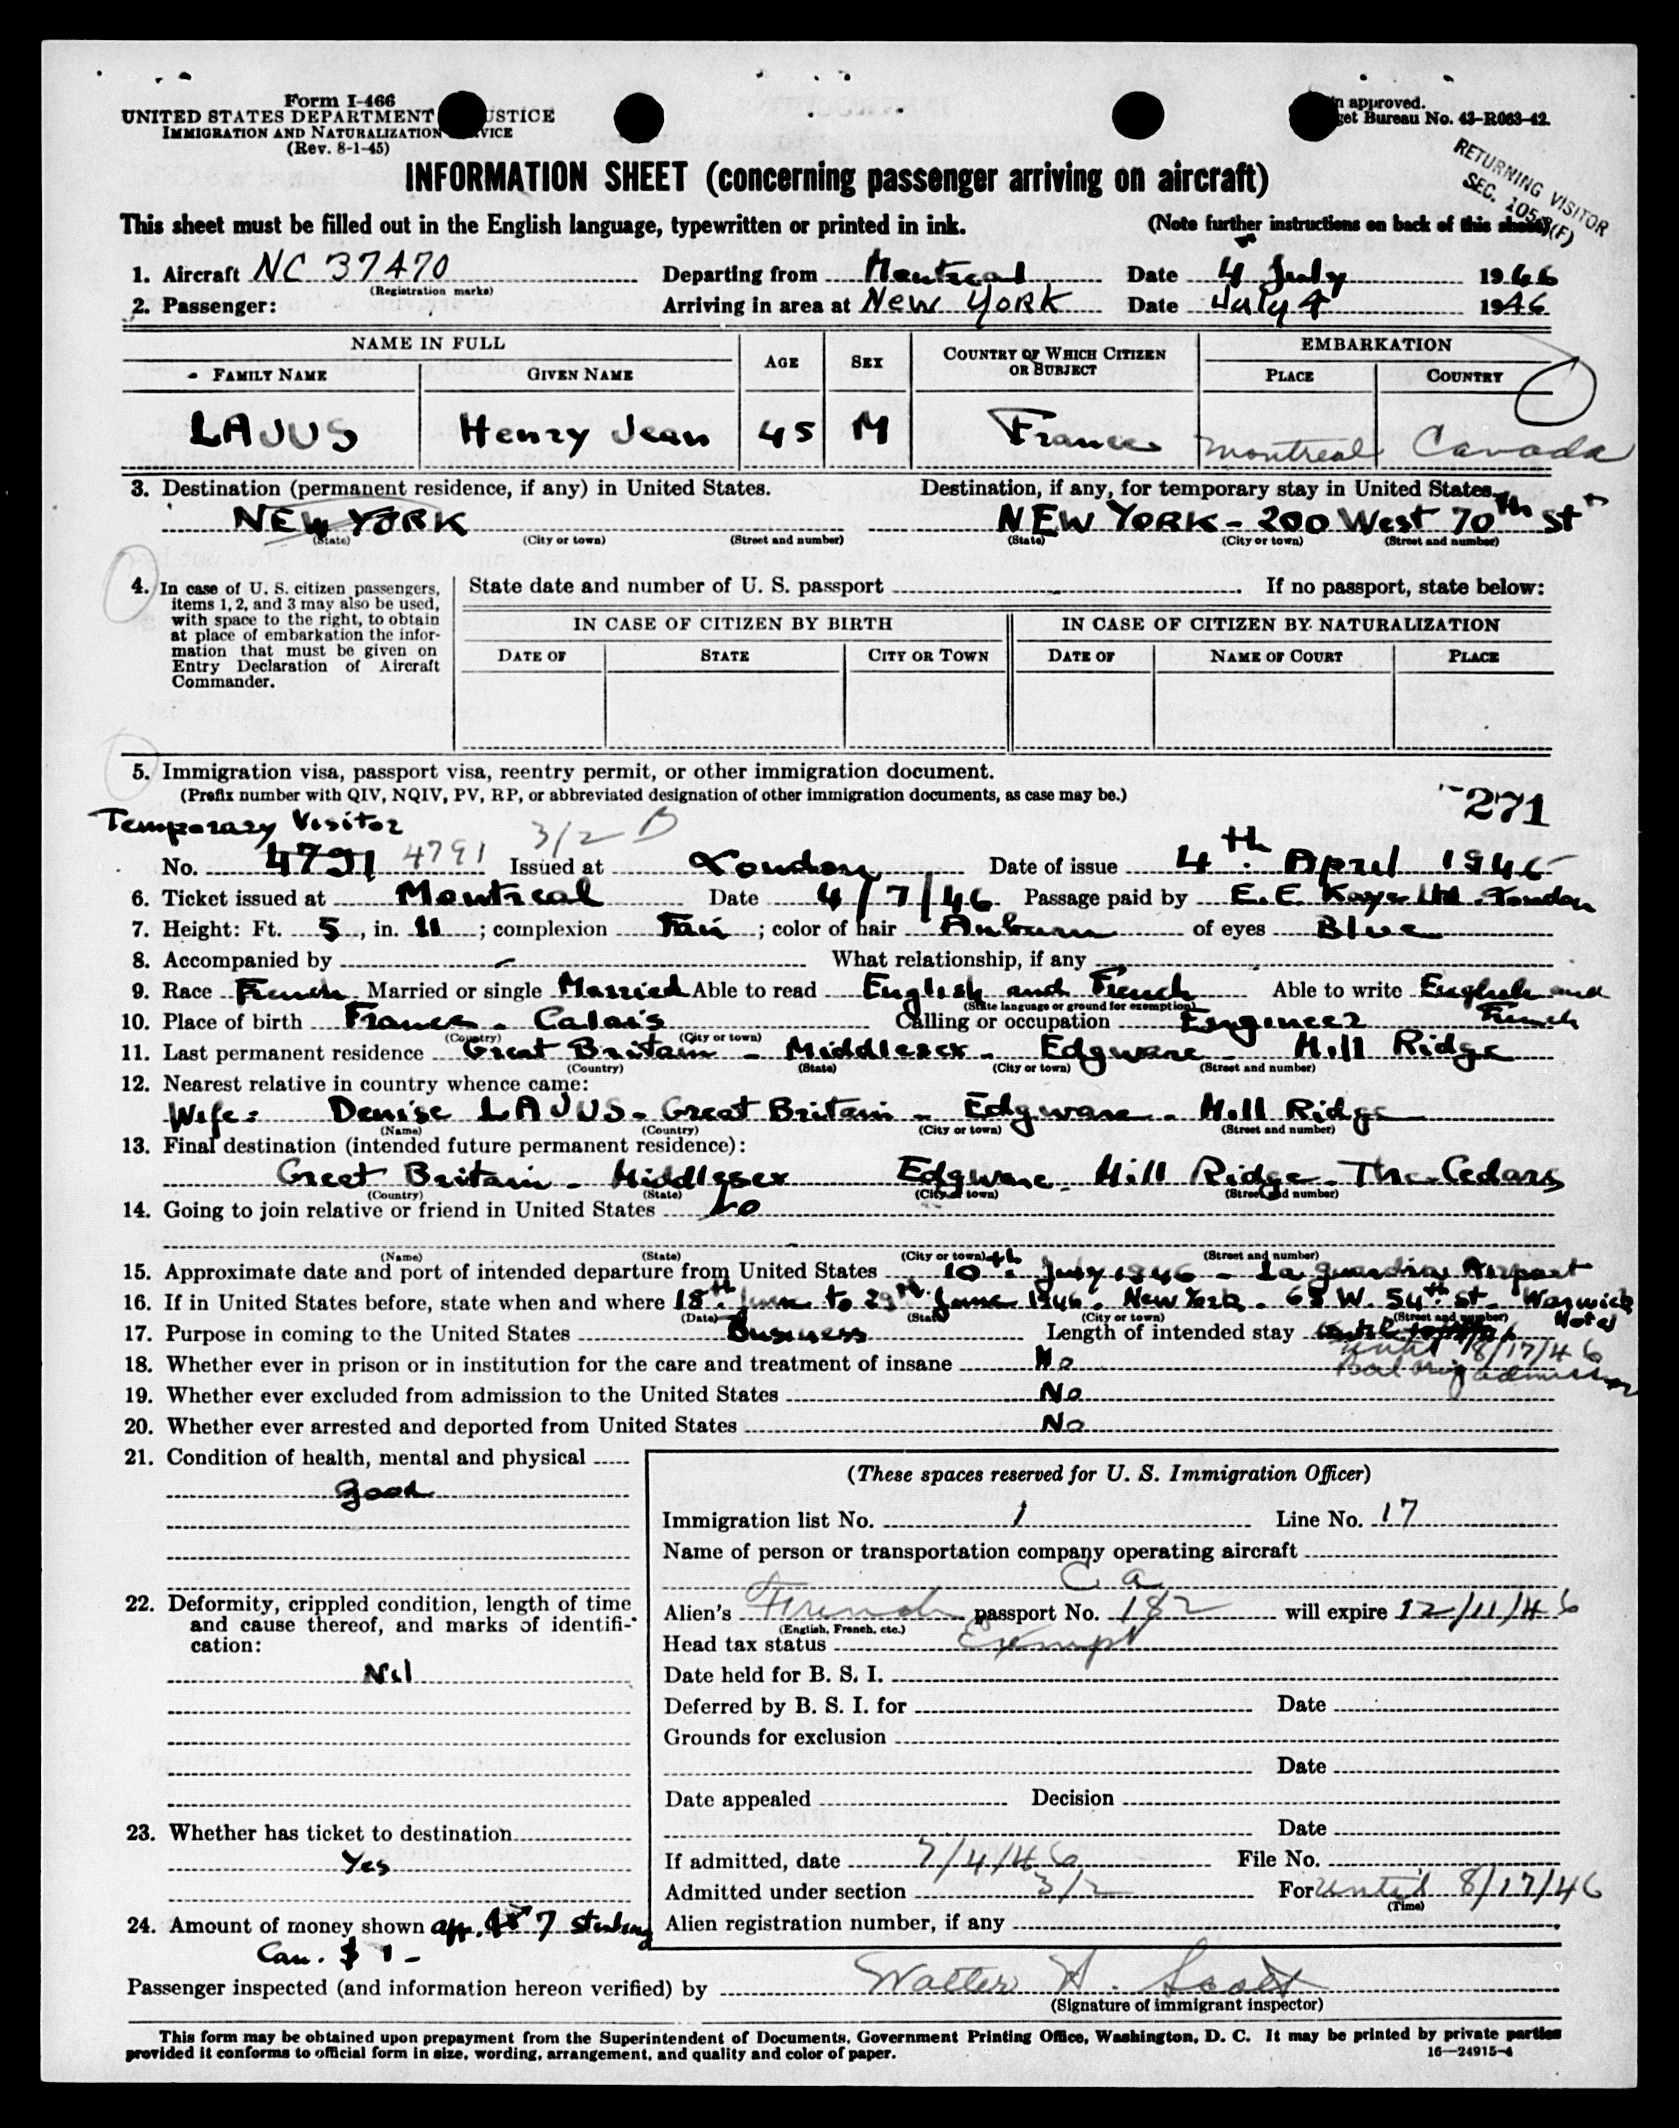 Form I-466
UNITED STATES DEPARTMENT JUSTICE
IMMIGRATION AND NATURALIZATION SERVICE
(Rev. 8-1-45)
approved.
get Bureau No. 43-R063-42.
RETURNING VISITOR
SEC. 105.3(F)
INFORMATION SHEET (concerning passenger arriving on aircraft)
This sheet must be filled out in the English language, typewritten or printed in ink. (Note further instructions on back of this sheet)
1. Aircraft NC 37470 Departing from Montreal Date 4 July 1946
(Registration marks)
2. Passenger: Arriving in area at New York Date July 4 1946
NAME IN FULL AGE SEX COUNTRY OF WHICH CITIZEN OR SUBJECT EMBARKATION
FAMILY NAME GIVEN NAME PLACE COUNTRY
LAJUS Henry Jean 45 M France Montreal Canada
3. Destination (permanent residence, if any) in United States. Destination, if any, for temporary stay in United States.
NEW YORK NEW YORK - 200 West 70th St
(State) (City or town) (Street and number) (State) (City or town) (Street and number)
4. In case of U. S. citizen passengers, items 1, 2, and 3 may also be used, with space to the right, to obtain at place of embarkation the information that must be given on Entry Declaration of Aircraft Commander.
State date and number of U. S. passport If no passport, state below:
IN CASE OF CITIZEN BY BIRTH IN CASE OF CITIZEN BY NATURALIZATION
DATE OF STATE CITY OR TOWN DATE OF NAME OF COURT PLACE
5. Immigration visa, passport visa, reentry permit, or other immigration document.
(Prefix number with QIV, NQIV, PV, RP, or abbreviated designation of other immigration documents, as case may be.)
271
Temporary Visitor 3/2 B
No. 4791 4791 Issued at London Date of issue 4th. April 1946
6. Ticket issued at Montreal Date 4/7/46 Passage paid by E.E. Kaye Ltd. London
7. Height: Ft. 5, in. 11; complexion Fair; color of hair Auburn of eyes Blue
8. Accompanied by - What relationship, if any
9. Race French Married or single Married Able to read English and French Able to write English and French
(State language or ground for exemption)
10. Place of birth France - Calais Calling or occupation Engineer
(Country) (City or town)
11. Last permanent residence Great Britain - Middlesex - Edgware - Hill Ridge
(Country) (State) (City or town) (Street and number)
12. Nearest relative in country whence came:
Wife: Denise LAJUS - Great Britain - Edgware - Hill Ridge
(Name) (Country) (City or town) (Street and number)
13. Final destination (intended future permanent residence):
Great Britain - Middlesex Edgware - Hill Ridge - The Cedars
(Country) (State) (City or town) (Street and number)
14. Going to join relative or friend in United States No
(Name) (State) (City or town) (Street and number)
15. Approximate date and port of intended departure from United States 10th. July 1946 - La Guardia Airport
16. If in United States before, state when and where 18th. June to 29th. June 1946. New York - 65 W. 54th St. Warwick Hotel
(Date) (State) (City or town) (Street and number)
17. Purpose in coming to the United States Business Length of intended stay until 8/17/46
Bal orig admission
18. Whether ever in prison or in institution for the care and treatment of insane No
19. Whether ever excluded from admission to the United States No
20. Whether ever arrested and deported from United States No
21. Condition of health, mental and physical
good
22. Deformity, crippled condition, length of time and cause thereof, and marks of identification:
Nil
23. Whether has ticket to destination
Yes
24. Amount of money shown app. 7 sterling
Can. $ 1 -
(These spaces reserved for U. S. Immigration Officer)
Immigration list No. 1 Line No. 17
Name of person or transportation company operating aircraft
C a
Alien's French passport No. 182 will expire 12/11/46
(English, French, etc.)
Head tax status Exempt
Date held for B. S. I.
Deferred by B. S. I. for Date
Grounds for exclusion
Date
Date appealed Decision
Date
If admitted, date 7/4/46 File No.
Admitted under section 3/2 For until 8/17/46
(Time)
Alien registration number, if any
Passenger inspected (and information hereon verified) by Walter A. Scott
(Signature of immigrant inspector)
This form may be obtained upon prepayment from the Superintendent of Documents, Government Printing Office, Washington, D. C. It may be printed by private parties
provided it conforms to official form in size, wording, arrangement, and quality and color of paper. 16—24915-4